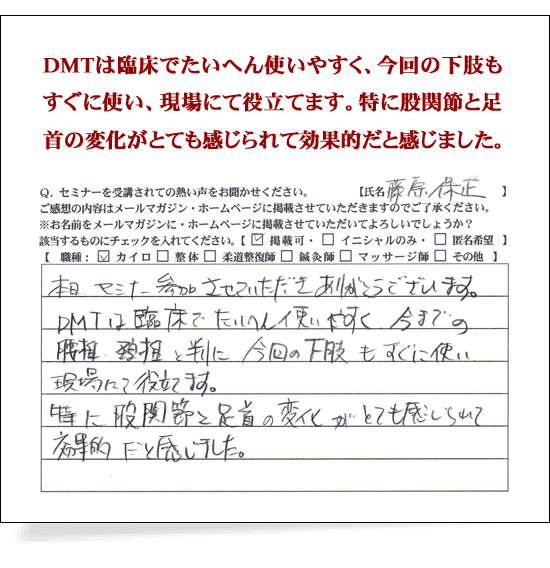 DMTは臨床でたいへん使いやすく、今回の下肢も
すぐに使い、現場にて役立てます。特に股関節と足
首の変化がとても感じられて効果的だと感じました。
Q. セミナーを受講されての熱い声をお聞かせください。 【氏名 藤原 保正 】
ご感想の内容はメールマガジン・ホームページに掲載させていただきますのでご了承ください。
※お名前をメールマガジンに・ホームページに掲載させていただいてよろしいでしょうか？
該当するものにチェックを入れてください。【 ☑ 掲載可・ □ イニシャルのみ・ □ 匿名希望 】
【 職種： ☑ カイロ □ 整体 □ 柔道整復師 □ 鍼灸師 □ マッサージ師 □ その他 】
本日 セミナー参加させていただきありがとうございます。
DMTは臨床でたいへん使いやすく 今までの
腰椎 頚椎と 今回の下肢もすぐに使い
現場にて役立てます。
特に股関節と足首の変化がとても感じられて
効果的だと感じました。